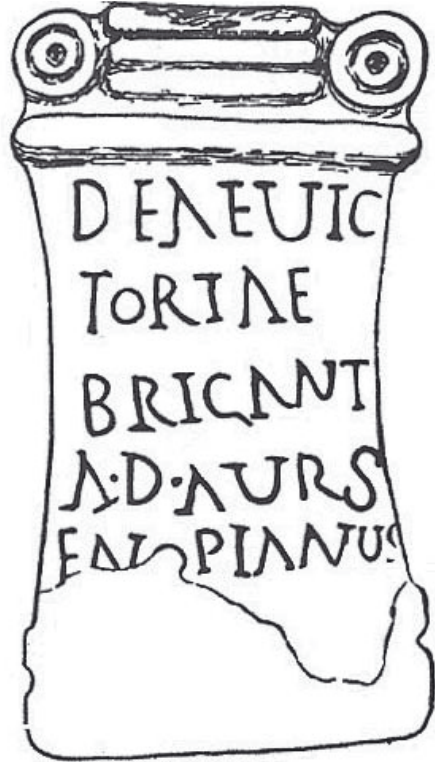 DEAEUIC
TORIAE
BRIGANT
A·D·AURS
ENOPIANUS